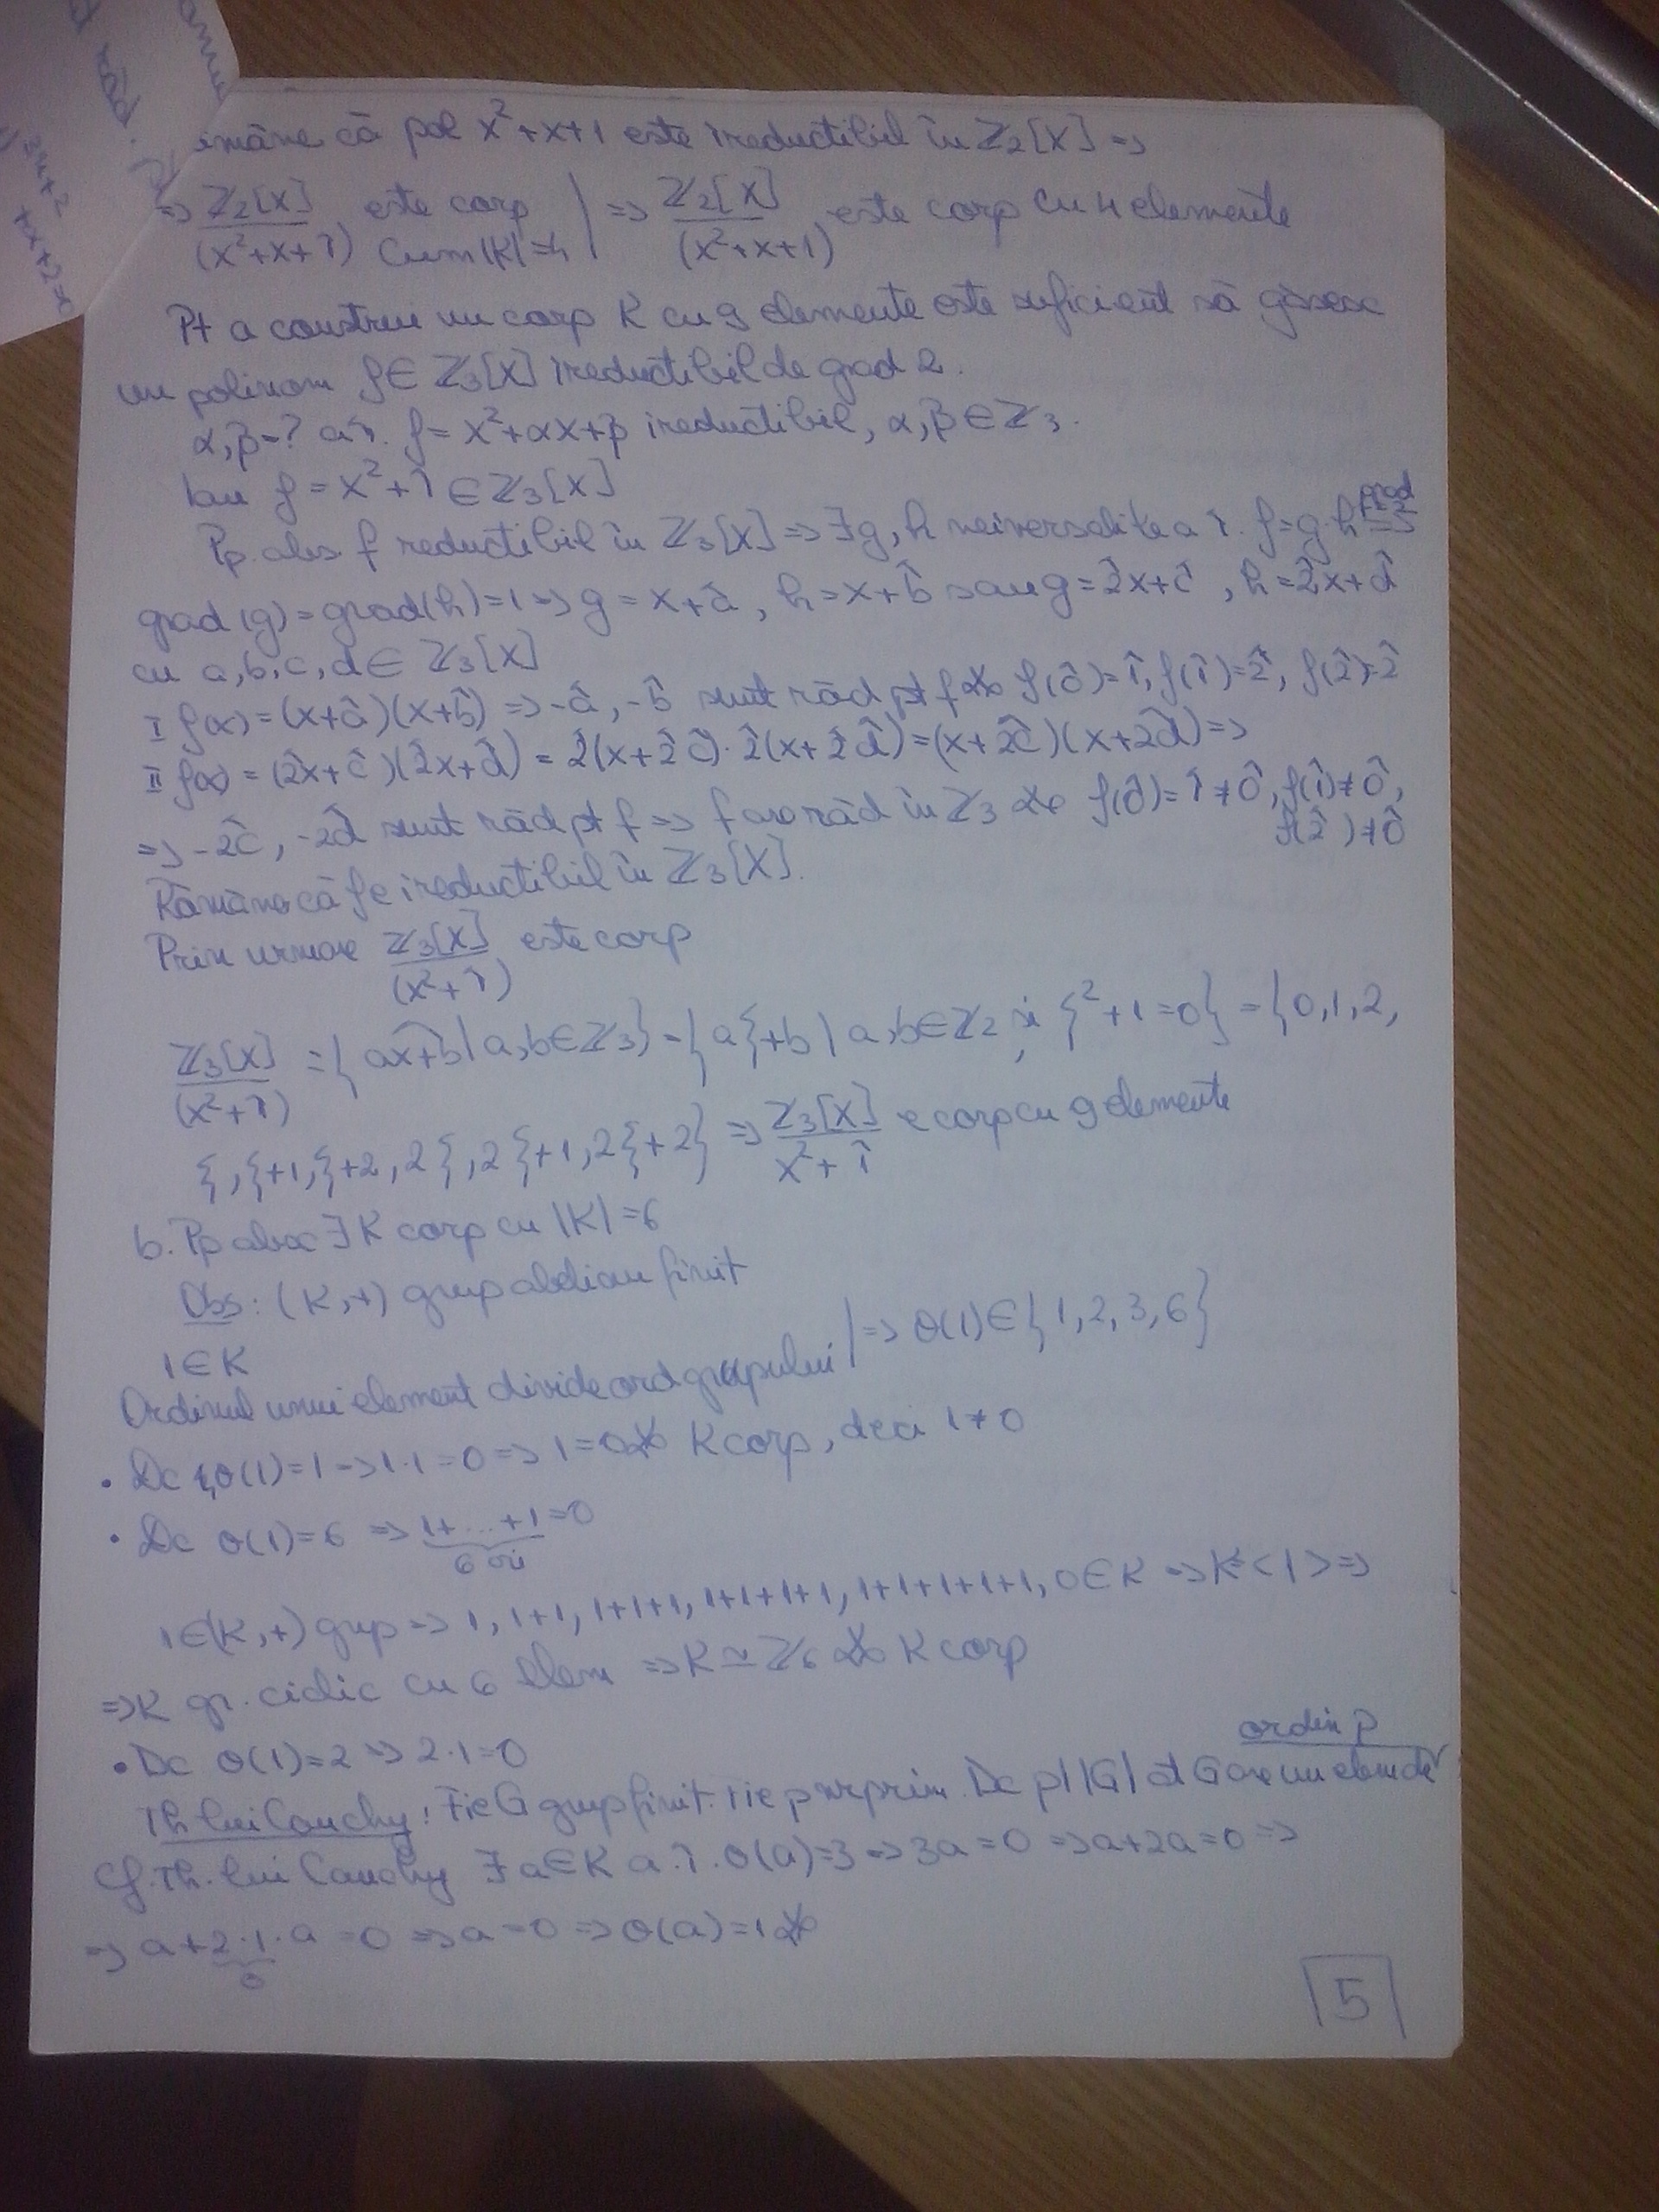 rămâne că pol x²+x+1 este ireductibil în Z₂[X] =>
=> Z₂[X]/(x²+x+1̂) este corp Cum |K|=4 | => Z₂[X]/(x²+x+1) este corp cu 4 elemente
Pt a construi un corp K cu 9 elemente este suficient să găsesc
un polinom f∈Z₃[X] ireductibil de grad 2.
α,β=? a.î. f=x²+αx+β ireductibil, α,β∈Z₃.
Iau f=x²+1̂∈Z₃[X]
Pp. abs f reductibil în Z₃[X] => ∃g,h neinversabile a.î. f=g·h =>
grad(g)=grad(h)=1 => g=x+â, h=x+b̂ sau g=2̂x+ĉ, h=2̂x+d̂
cu a,b,c,d∈Z₃[X]
I f(x)=(x+â)(x+b̂) => -â,-b̂ sunt răd pt f ※ f(0̂)=1̂, f(1̂)=2̂, f(2̂)=2̂
II f(x)=(2̂x+ĉ)(2̂x+d̂)=2̂(x+2̂ĉ)·2̂(x+2̂d̂)=(x+2ĉ)(x+2d̂) =>
=> -2ĉ, -2d̂ sunt răd pt f => f are răd în Z₃ ※ f(0̂)=1̂≠0̂, f(1̂)≠0̂,
f(2̂)≠0̂
Rămâne că f e ireductibil în Z₃[X].
Prin urmare Z₃[X]/(x²+1̂) este corp
Z₃[X]/(x²+1̂) = {ax+b | a,b∈Z₃} = {aξ+b | a,b∈Z₂ și ξ²+1=0} = {0,1,2,
ξ,ξ+1,ξ+2,2ξ,2ξ+1,2ξ+2} => Z₃[X]/x²+1̂ e corp cu 9 elemente
b. Pp abs ∃K corp cu |K|=6
Obs: (K,+) grup abelian finit
1∈K
Ordinul unui element divide ord grupului | => θ(1)∈{1,2,3,6}
• Dc θ(1)=1 => 1·1=0 => 1=0 ※ K corp, deci 1≠0
• Dc θ(1)=6 => 1+...+1=0
6 ori
1∈(K,+) grup => 1, 1+1, 1+1+1, 1+1+1+1, 1+1+1+1+1, 0∈K => K=<1> =>
=> K gr. ciclic cu 6 elem => K≃Z₆ ※ K corp
• Dc θ(1)=2 => 2·1=0
ordin p
Th lui Cauchy: Fie G grup finit. Fie p nr prim. Dc p||G| at G are un elem de
Cf. Th. lui Cauchy ∃a∈K a.î. θ(a)=3 => 3a=0 => a+2a=0 =>
=> a+2·1·a=0 => a=0 => θ(a)=1 ※
0
5